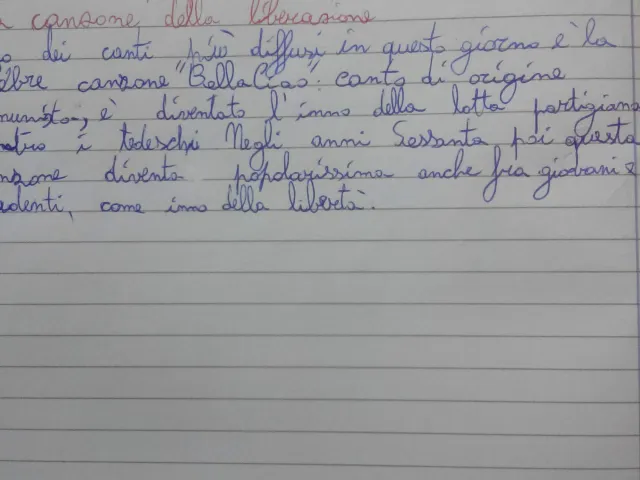 canzone della liberazione
o dei canti più diffusi in questo giorno è la
ebre canzone "Bella Ciao": canto di origine
munista, è diventato l'inno della lotta partigiana
ntro i tedeschi Negli anni Sessanta poi questa
nzone diventa popolarissima anche fra giovani e
udenti, come inno della libertà.